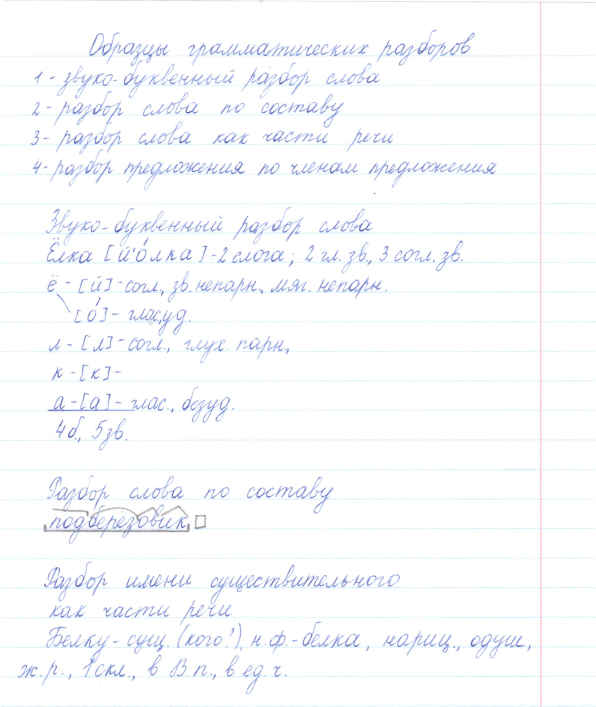 Образцы грамматических разборов
1 - звуко-буквенный разбор слова
2 - разбор слова по составу
3 - разбор слова как части речи
4 - разбор предложения по членам предложения
Звуко-буквенный разбор слова
Ёлка [й'óлка] - 2 слога; 2 гл. зв., 3 согл. зв.
ё - [й] - согл., зв. непарн., мяг. непарн.
[ó] - глас., уд.
л - [л] - согл., глух. парн.,
к - [к] -
а - [а] - глас., безуд.
4 б., 5 зв.
Разбор слова по составу
подберёзовик
Разбор имени существительного
как части речи
Белку - сущ. (кого?), н.ф. - белка, нариц., одуш.,
ж.р., 1 скл., в В.п., в ед.ч.